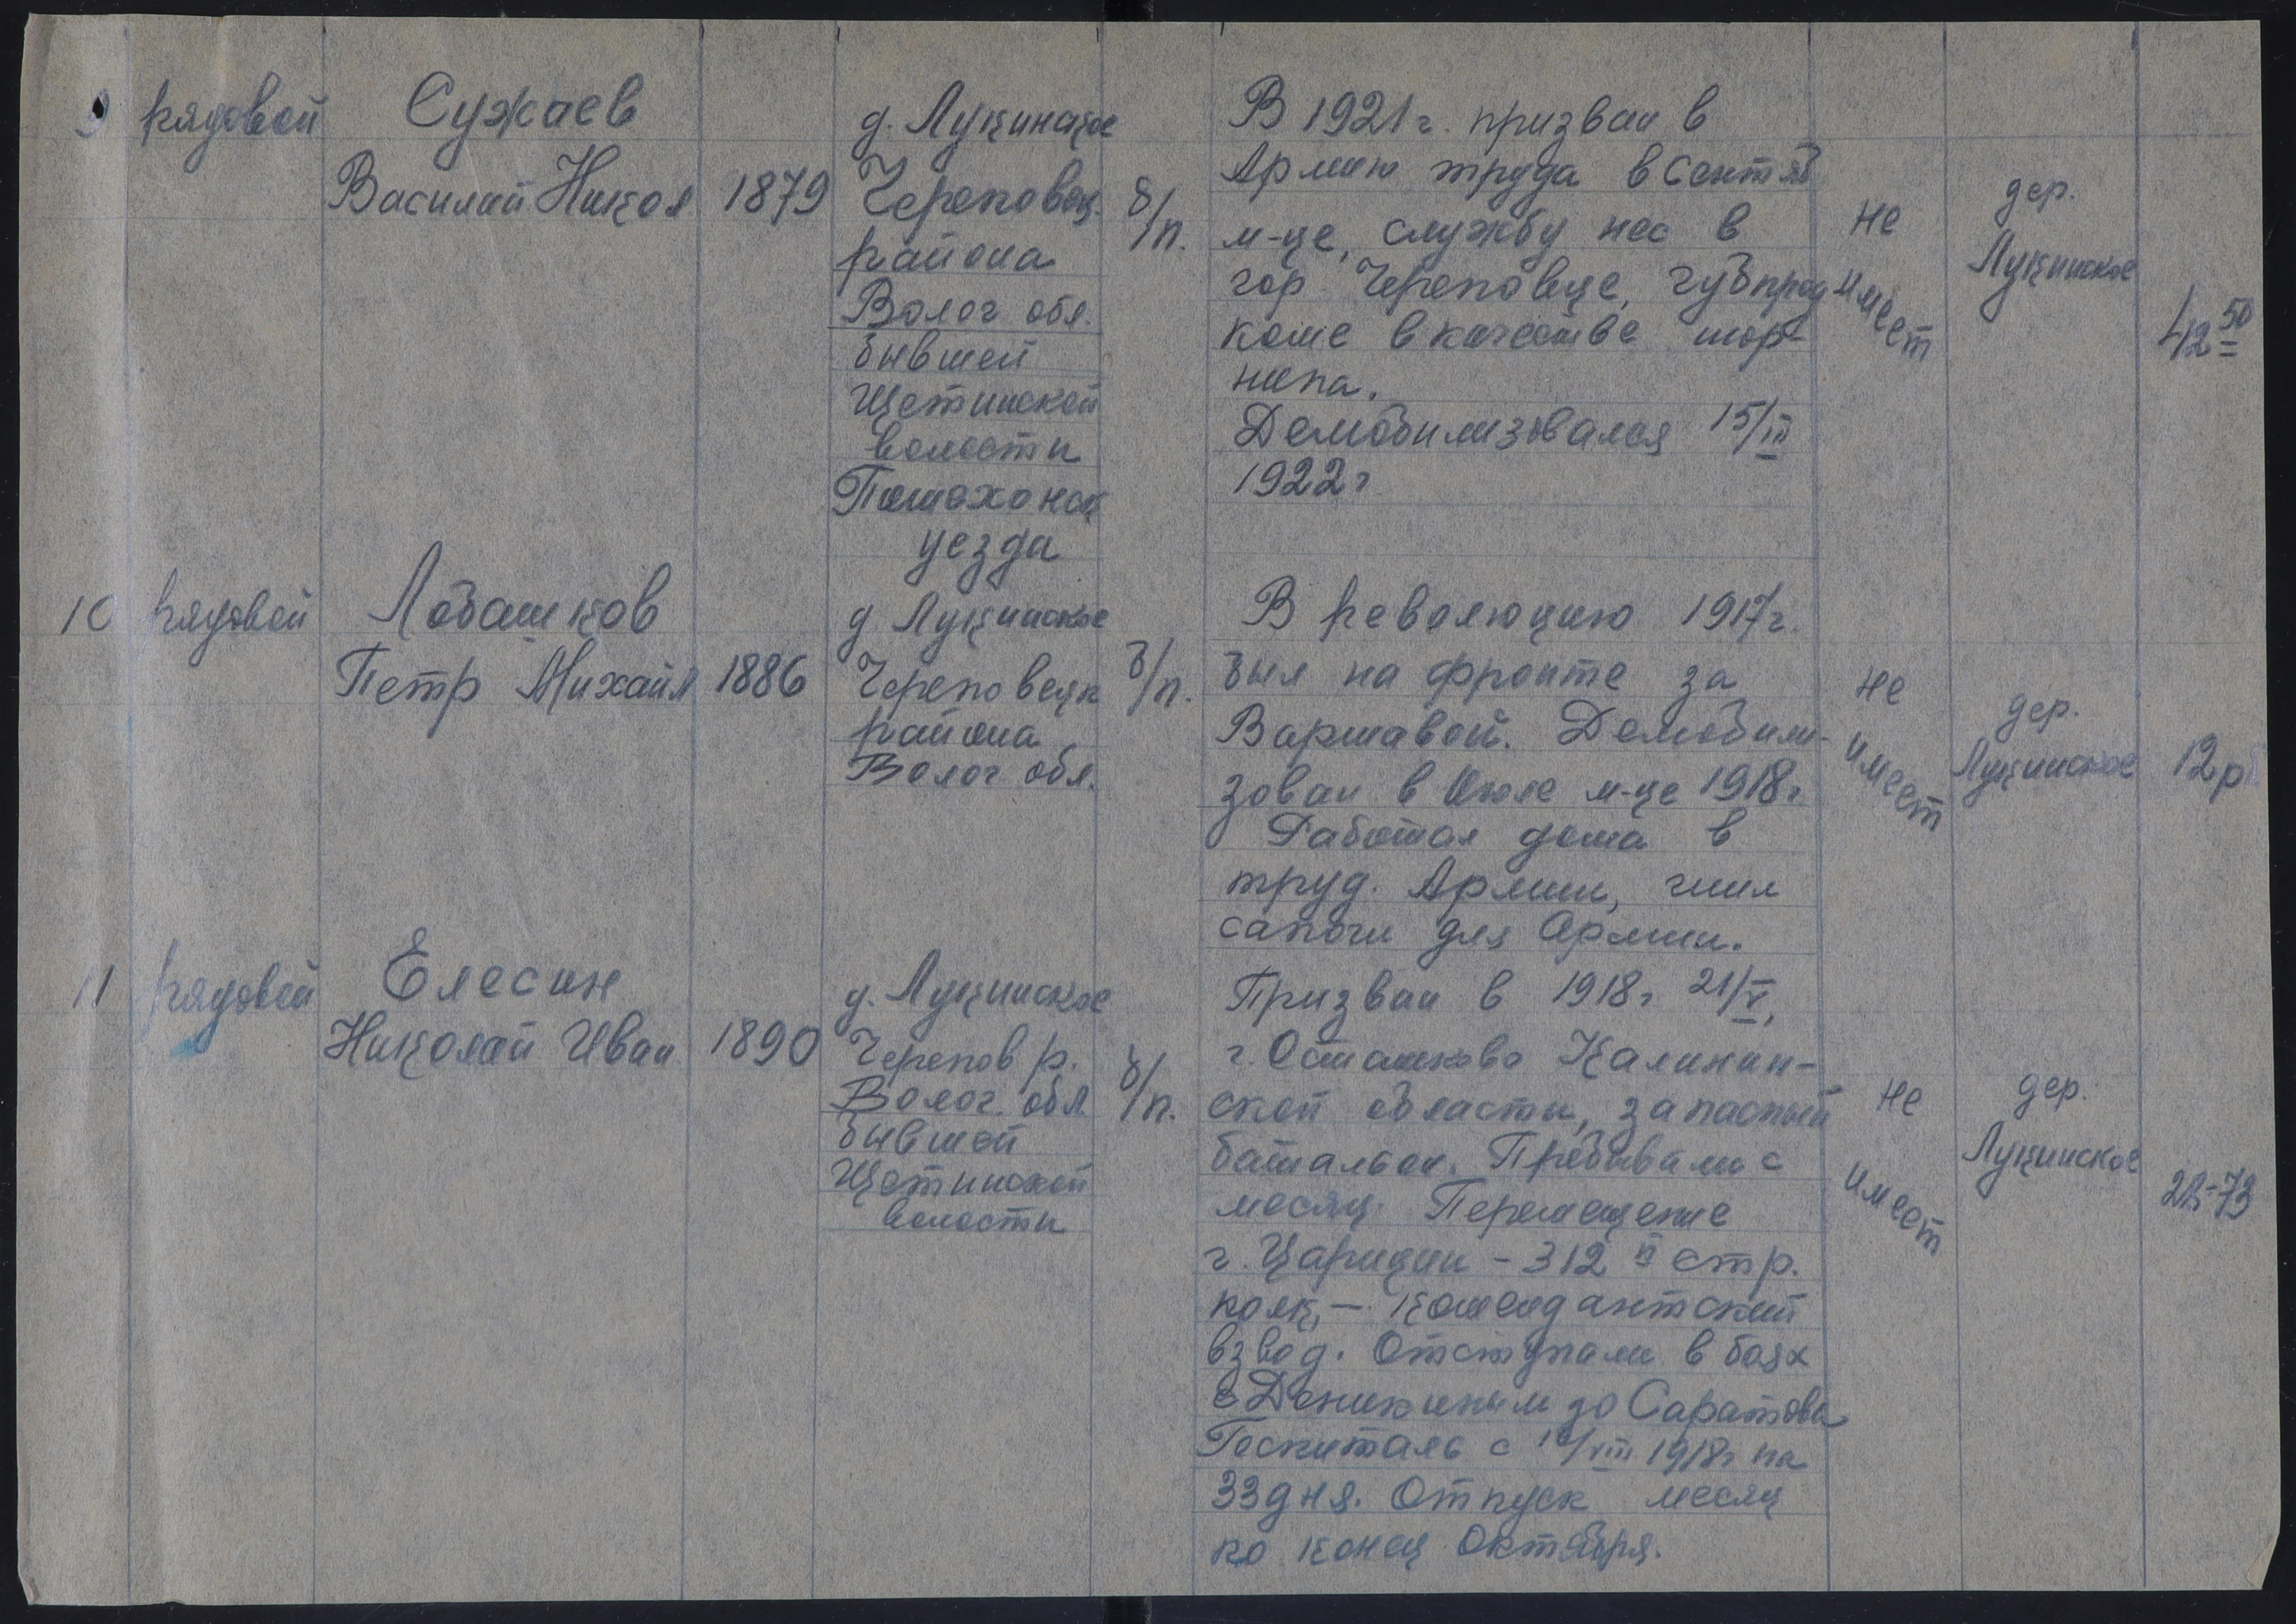 9 рядовой Сужаев
Василий Никол. 1879
д. Лукинское
Череповец.
района
Волог обл.
бывшей
Щетинской
волости
Пошехонск
уезда
б/п.
В 1921 г. призван в
Армию труда в Сентяб
м-це, службу нес в
гор. Череповце, губпрод
коме в качестве шор-
ника.
Демобилизовался 15/III
1922 г
не
имеет
дер.
Лукинское
42 50
10 рядовой Лобашков
Петр Михайл 1886
д Лукинское
Череповецк
района
Волог обл.
б/п.
В революцию 1917 г.
был на фронте за
Варшавой. Демобили-
зован в Июле м-це 1918 г
Работал дома в
труд. Армии, шил
сапоги для Армии.
не
имеет
дер.
Лукинское
12 р
11 рядовой Елесин
Николай Иван. 1890
д. Лукинское
Черепов р.
Волог обл
бывшей
Щетинской
волости
б/п.
Призван в 1918 г 21/V,
г. Осташково Калинин-
ской области, запасный
батальон. Пребывали с
месяц. Перемещение
г. Царицин - 312 й стр.
полк, - комендантский
взвод. Отступали в боях
с Деникиным до Саратова
Госпиталь с /VIII 1918 г на
33 дня. Отпуск месяц
по конец Октября.
не
имеет
дер.
Лукинское